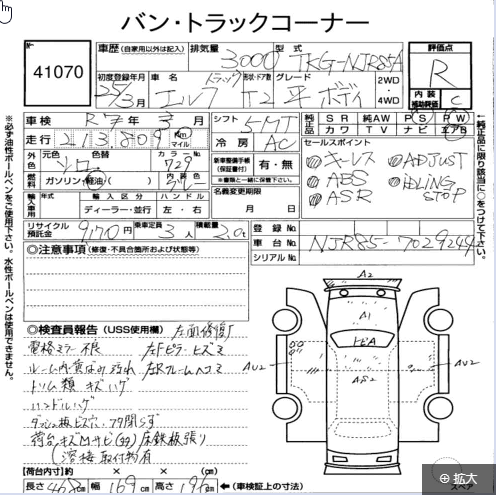 バン・トラックコーナー
41070
車歴 (自家用以外は記入)
排気量 3000
型式 TKG-NJR85A
評価点 R
内装補助評価 C
初度登録年月 25年3月
車名 エルフ
形状・ドア数 トラック T2
グレード 平ボディ
2WD・4WD
車検 R7年3月
シフト 5MT
純正品 SR 純AW PS PW
カワ TV ナビ エアB
走行 213,809 Km マイル
冷房 AC
セールスポイント
キーレス ADJUST
ABS IDLING STOP
ASR
外色 元色 シロ 色替 カラーNo. 729
新車整備手帳(保証書付) 有・無
※書類と一緒に保管下さい。
燃料 ガソリン・軽油・( ) 内装色 グレー
名義変更期限 月 日
輸入車用 年式 輸入区分 ハンドル
ディーラー・並行 左・右
リサイクル預託金 9170円 乗車定員 3人 積載量 2.0t
登録No.
車台No. NJR85-7029244
シリアルNo.
◎注意事項 (修復・不具合箇所および状態等)
◎検査員報告 (USS使用欄) 左面修復有
電格ミラー不良 左Fピラーヒズミ
ルーム内黄ばみ汚れ 左Rフレームヘコミ
トリム類キズハゲ
ハンドルハゲ
荷台キズMサビ(ヨゴ)床鉄板張り
(溶接取付物有
【荷台内寸】約 × × (cm)
長さ 468cm 幅 169cm 高さ 196cm ←(車検証上の寸法)
A2
A1
トビA
AS2
AU2
AU2
スペア
拡大
※必ず油性ボールペンをご使用下さい。水性ボールペンは使用できません。
←純正品に限り該当に○をつけて下さい。